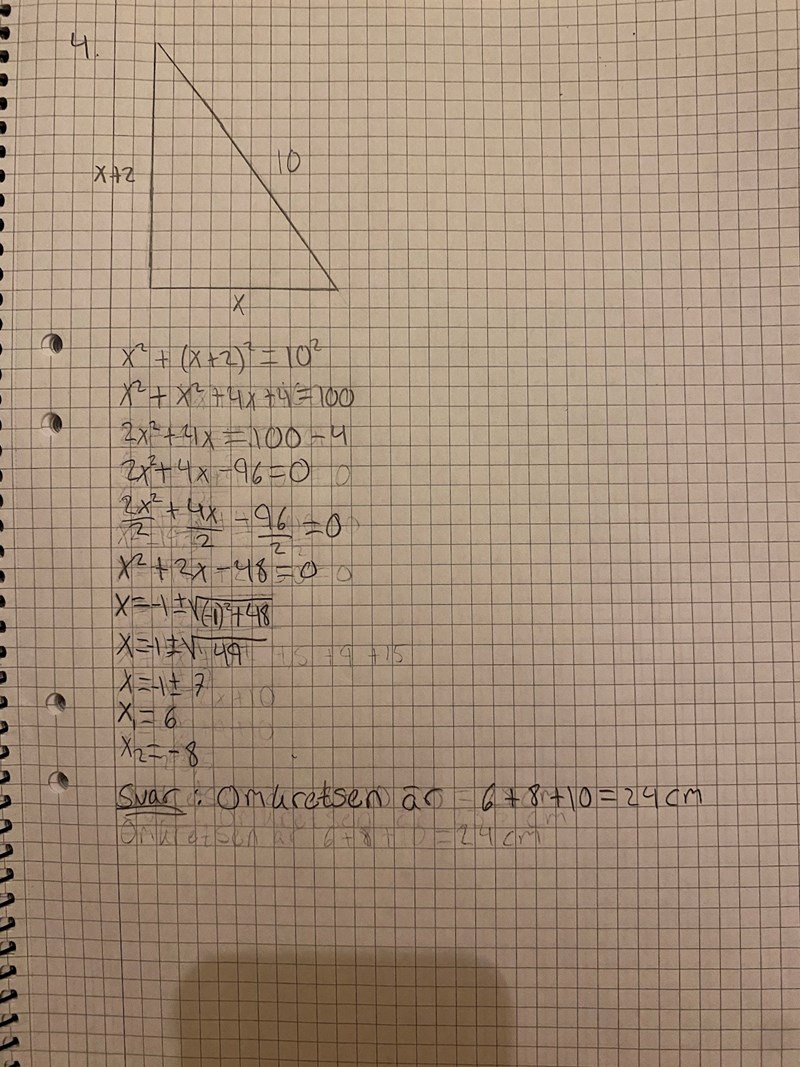 4.
x+2
10
x
x² + (x+2)² = 10²
x² + x² + 4x + 4 = 100
2x² + 4x = 100 - 4
2x² + 4x - 96 = 0
2x²/2 + 4x/2 - 96/2 = 0
x² + 2x - 48 = 0
x = -1 ± √(-1)² + 48
x = -1 ± √49
x = -1 ± 7
x₁ = 6
x₂ = -8
Svar: Omkretsen är 6 + 8 + 10 = 24 cm
Omkretsen är 6 + 8 + 10 = 24 cm